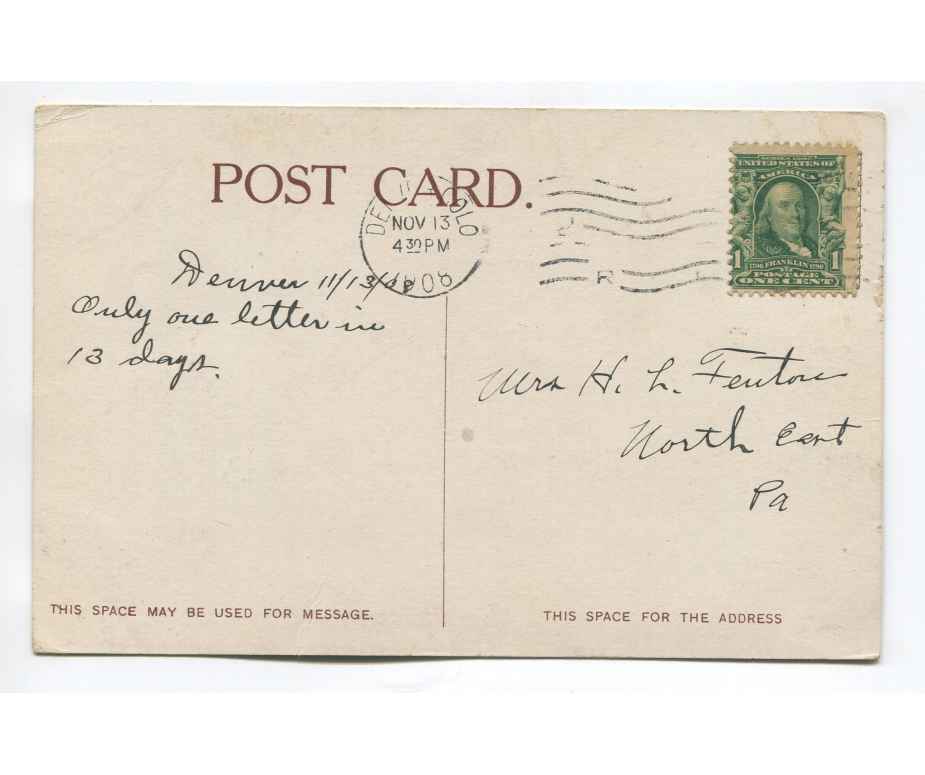 POST CARD.
DENVER COLO
NOV 13
4 30 PM
1908
SERIES 1902
UNITED STATES OF
AMERICA
1 1706 FRANKLIN 1790 1
POSTAGE
ONE CENT
Denver 11/13/08
Only one letter in
13 days.
Mrs H. L. Fenton
North East
Pa
THIS SPACE MAY BE USED FOR MESSAGE.
THIS SPACE FOR THE ADDRESS